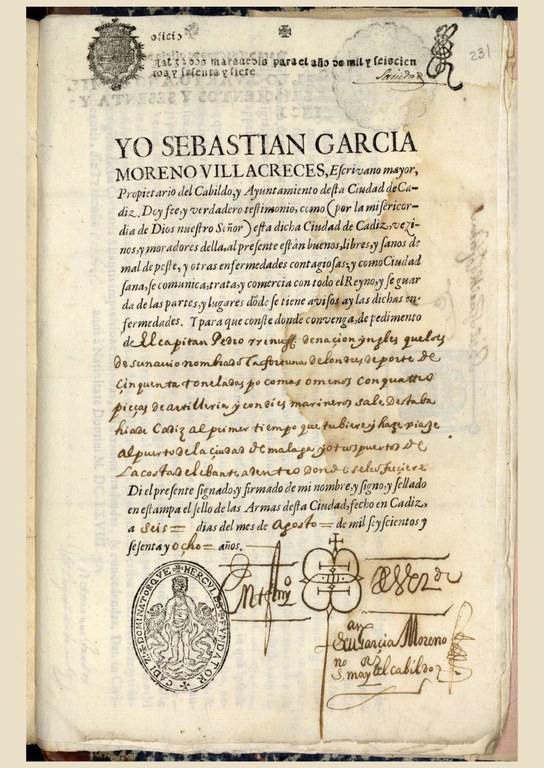 oficio
231
maravedis para el año de mil y seiscien
tos y sesenta y siete
YO SEBASTIAN GARCIA
MORENO VILLACRECES, Escrivano mayor,
Propietario del Cabildo, y Ayuntamiento desta Ciudad de Ca-
diz. Doy fee, y verdadero testimonio, como (por la misericor-
dia de Dios nuestro Señor) esta dicha Ciudad de Cadiz, vezi-
nos, y moradores della, al presente están buenos, libres, y sanos de
mal de peste, y otras enfermedades contagiosas; y como Ciudad
sana, se comunica, trata, y comercia con todo el Reyno, y se guar
da de las partes, y lugares dõde se tiene avisos ay las dichas en-
fermedades. Y para que conste donde convenga, de pedimento
de El capitan Pedro de nacion yngles que lo es
de su navio nombrado La fortuna de londres de porte de
Cinquenta toneladas poco mas o menos Con quattro
pieças de artilleria y con dies marineros sale desta ba
hia de Cadiz al primer tiempo que tubiere y haze viaje
al puerto de la ciudad de malaga y otros puertos de
La costa de lebante adentro donde se les hiciere
Di el presente signado, y firmado de mi nombre, y signo, y sellado
en estampa el sello de las Armas desta Ciudad, fecho en Cadiz,
a seis = dias del mes de Agosto = de mil y seyscientos y
sesenta y ocho = años.
CADIZ DOMINATORQVE HERCVLES FVNDATOR
Garcia Moreno
s. may. del cabildo